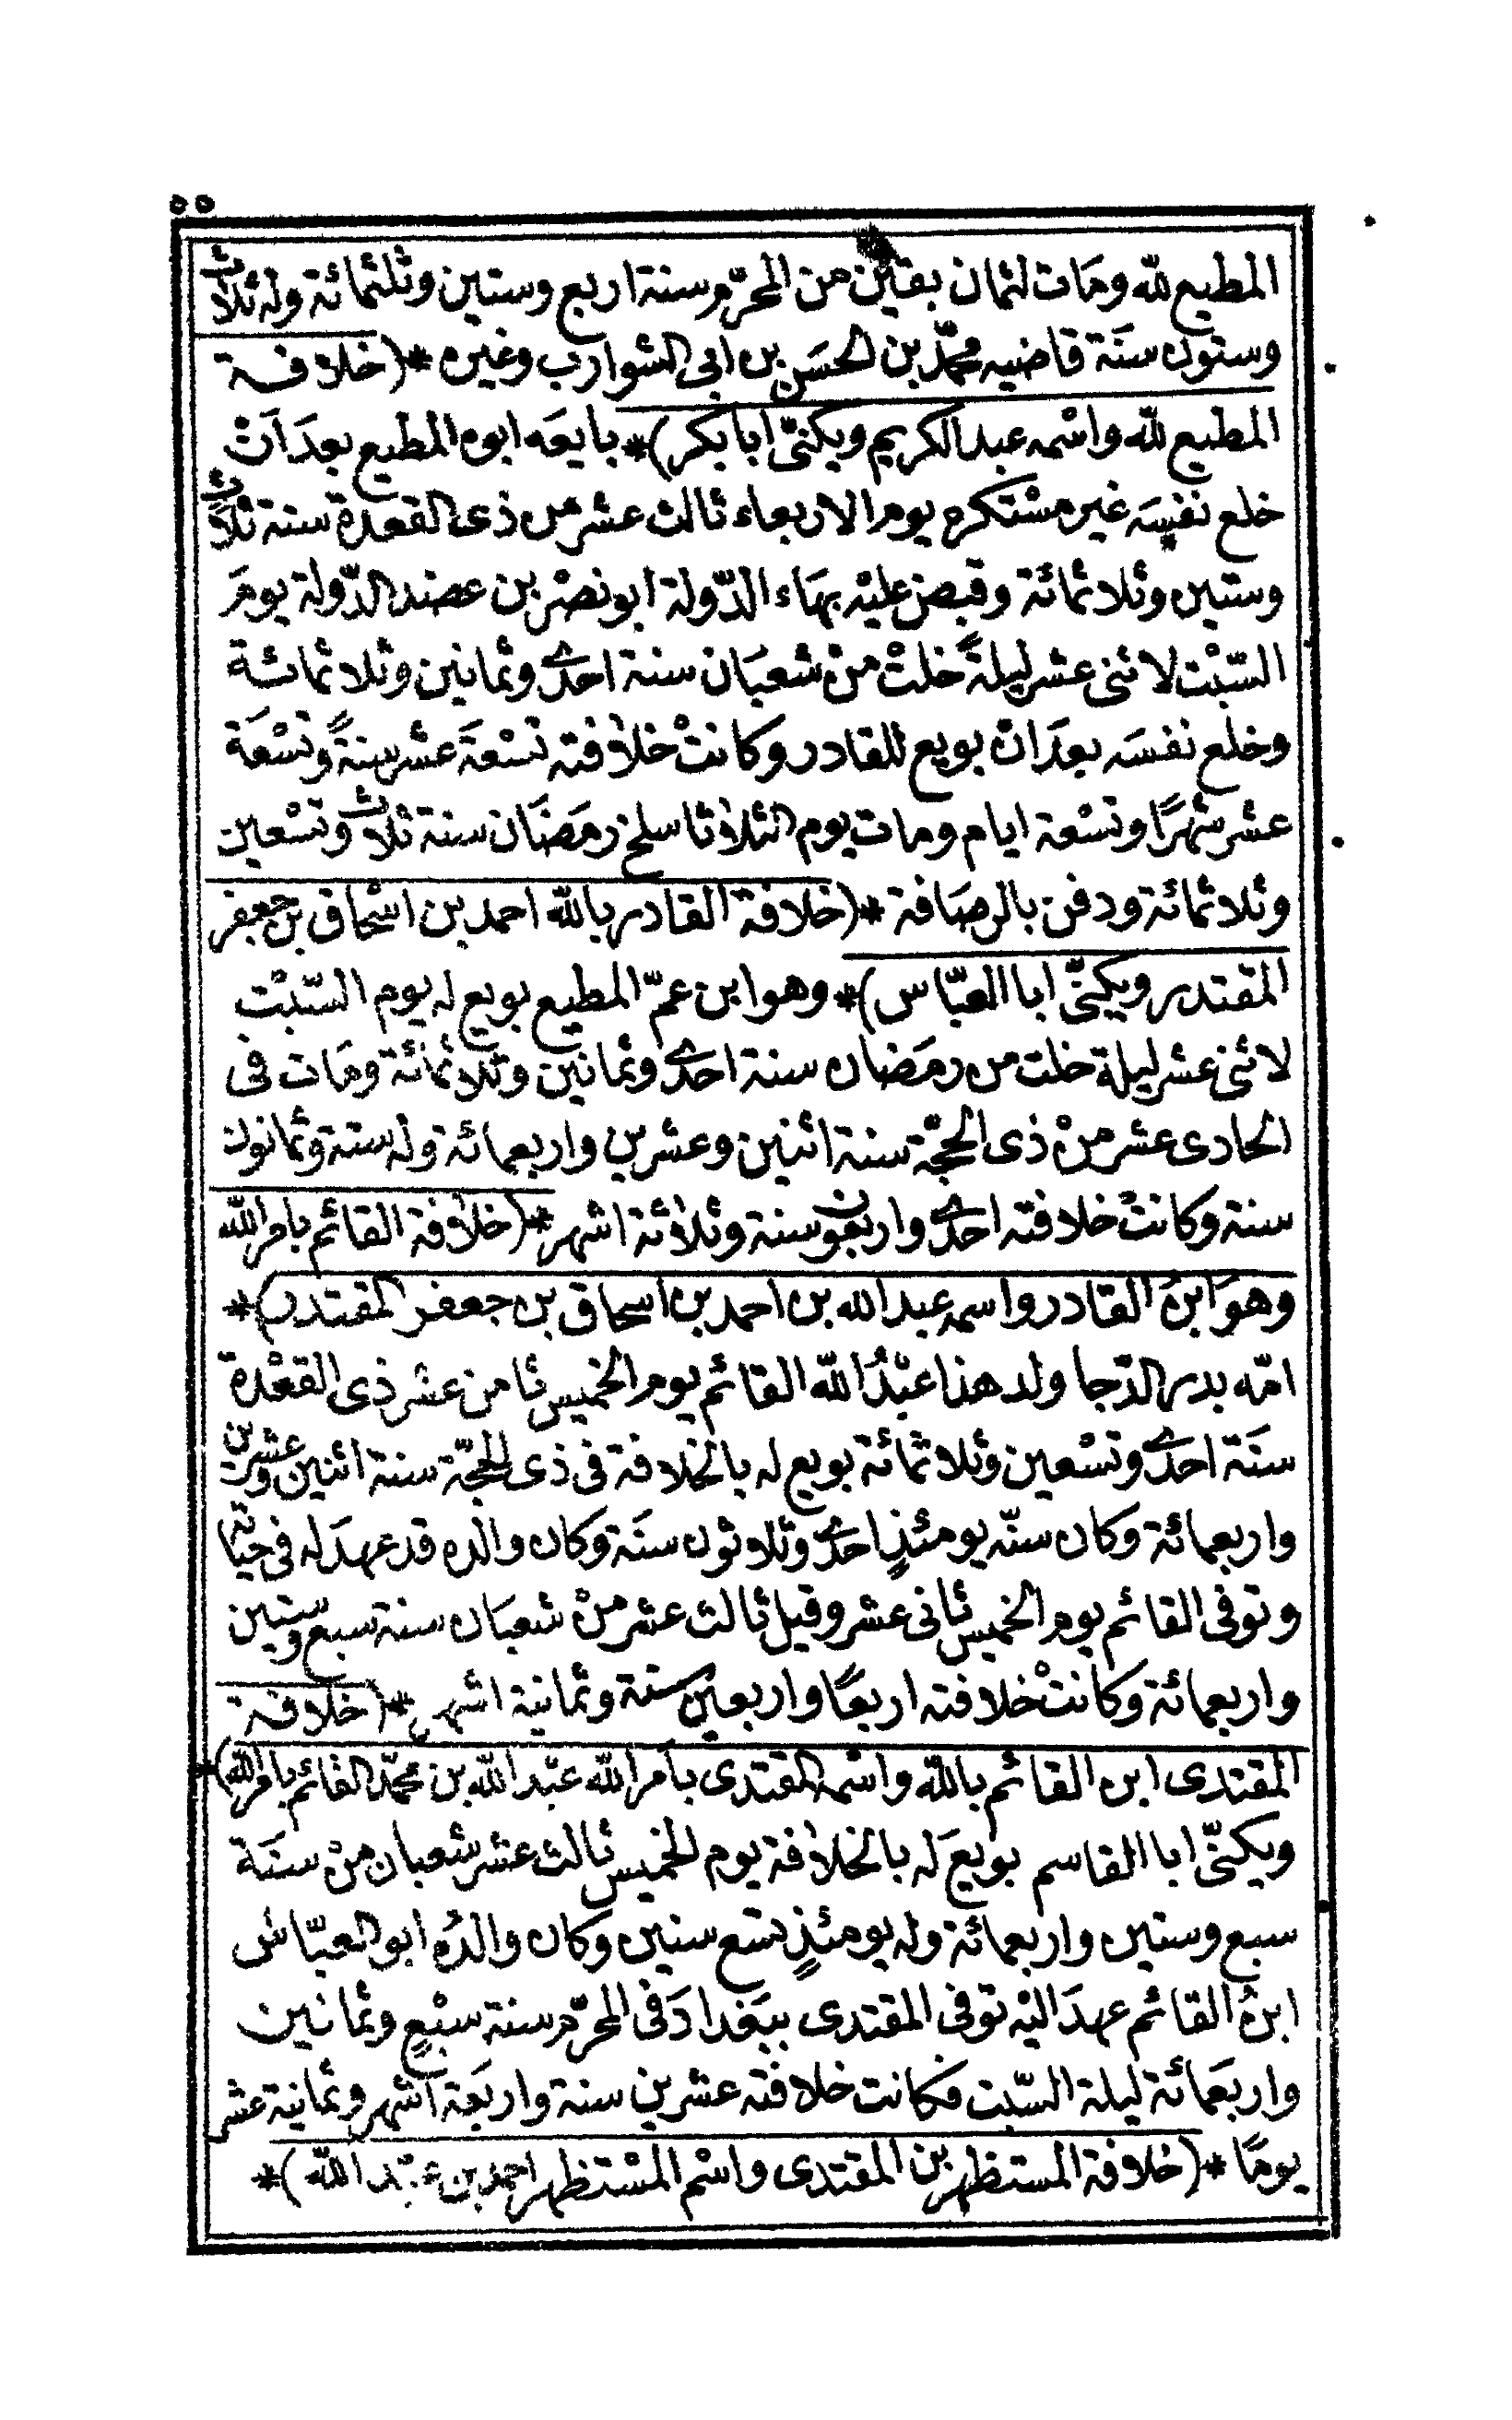 ٥٥
المطيع لله ومَات لثمان بقين من المحرّم سنة اربع وستين وثلثمائة وله ثلاث
وستون سنَة قاضيه محمّد بن الحسَن بن ابى الشوارب وغيره *(خلافة
المطيع لله واسْمه عبد الكريم ويكنّى ابا بكر)* بايعَه ابوه المطيع بعدَ اَنْ
خلع نفسَه غير مسْتكره يوم الاربعاء ثالث عشر من ذى القعدة سنة ثلاث
وستين وثلاثمائة وقبض عليْه بهَاء الدّولة ابو نصْر بن عضد الدّولة يومَ
السّبْت لاثنى عشر ليلةً خلتْ منْ شعبَان سنة احدَى وثمانين وثلاثمائة
وخلع نفسَه بعدَ انْ بويع للقادر وكانتْ خلافته تسْعَة عشر سنةً وتسْعَة
عشر شهرًا وتسْعة ايام ومات يوم الثلاثا سلخ رمَضَان سنة ثلاث وتسْعين
وثلاثمائة ودفن بالرصَافة *(خلافة القادر بالله احمد بن اسْحاق بن جعفر
المقتدر ويكنّى ابا العبّاس)* وهو ابن عمّ المطيع بويع له يوم السّبْت
لاثنى عشر ليلة خلت من رمَضان سنة احدَى وثمانين وثلاثمائة ومَات فى
الحادى عشر منْ ذى الحجّة سنة اثنين وعشرين واربعمائة وله ستة وثمانون
سنة وكانتْ خلافته احدَى واربعون سنة وثلاثة اشهر *(خلافة القائم بامر الله
وهوَ ابنُ القادر واسمه عبد الله بن احمد بن اسحاق بن جعفر المقتدر)*
امّه بدر الدّجا ولد هذا عبْدُ اللّه القائم يوم الخميس ثامن عشر ذى القعْدة
سنَة احدَى وتسْعين وثلاثمائة بويع له بالخلافة فى ذى الحجّة سنة اثنين وعشرين
واربعمائة وكان سنّه يومئذٍ احدَى وثلاثون سنَة وكان والده قد عهدَ له فى حيَاته
وتوفى القائم يوم الخميس ثانى عشر وقيل ثالث عشر منْ شعبَان سنة سبع وستين
واربعمائة وكانتْ خلافته اربعًا واربعين سنة وثمانية اشهر *(خلافة
المقتدى ابن القائم بالله واسْمه المقتدى بأمر الله عبْد الله بن محمّد القائم بامر الله)*
ويكنّى ابا القاسم بويعَ له بالخلافة يوم الخميس ثالث عشر شعبان منْ سنَة
سبع وستين واربعمائة وله يومئذٍ تسع سنين وكان والدُه ابو العبّاس
ابنُ القائم عهدَ اليْه توفى المقتدى ببَغدادَ فى المحرّم سنة سبْعٍ وثمانين
واربعَمائة ليلة السّبت فكانت خلافته عشرين سنة واربَعة اشهر وثمانية عشر
يومًا *(خلافة المستظهر بن المقتدى واسْم المسْتظهر احمد بن عبْد الله)*